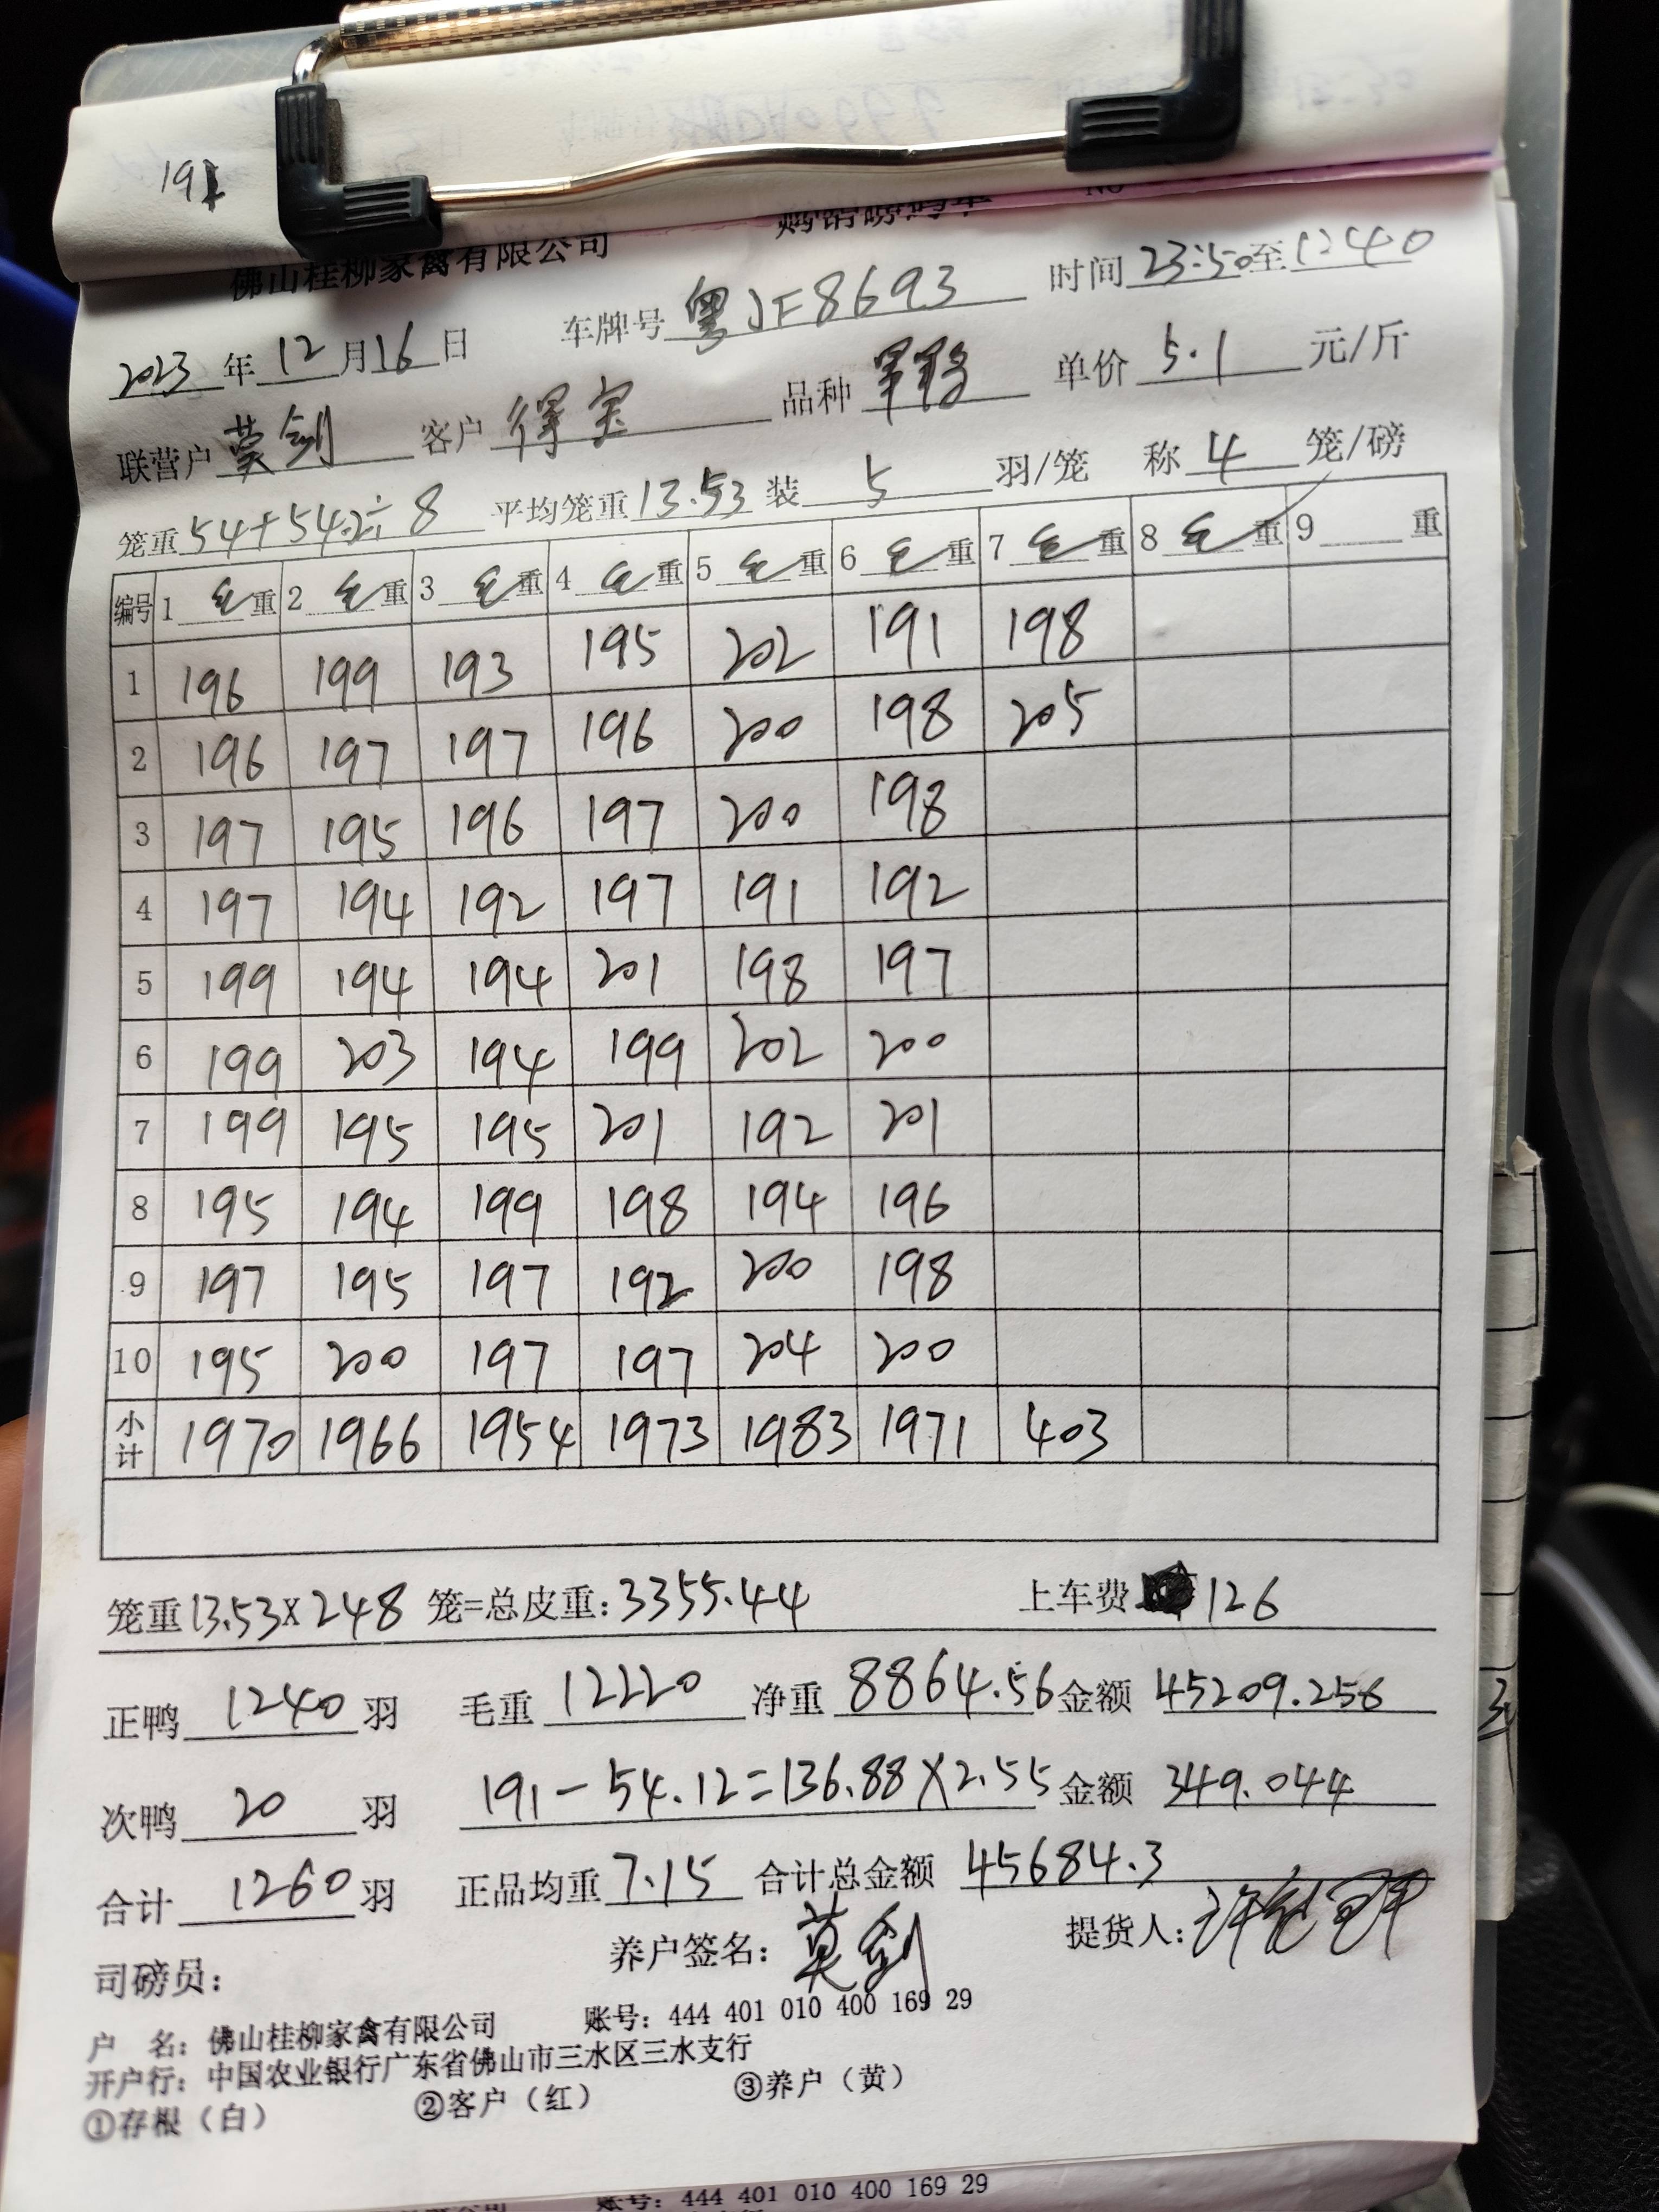 191
佛山桂柳家禽有限公司 购销磅码单 No
2023年12月16日 车牌号 粤JF8693 时间 23:50至12:40
联营户 莫剑 客户 得宝 品种 单价 5.1 元/斤
笼重 54+54.2÷8 平均笼重 13.53 装 5 羽/笼 称 4 笼/磅
编号 1 毛重 2 毛重 3 毛重 4 毛重 5 毛重 6 毛重 7 毛重 8 毛重 9 重
1 196 199 193 195 202 191 198
2 196 197 197 196 200 198 205
3 197 195 196 197 200 198
4 197 194 192 197 191 192
5 199 194 194 201 198 197
6 199 203 194 199 202 200
7 199 195 195 201 192 201
8 195 194 199 198 194 196
9 197 195 197 192 200 198
10 195 200 197 197 204 200
小计 1970 1966 1954 1973 1983 1971 403
笼重 13.53×248 笼=总皮重: 3355.44 上车费 126
正鸭 1240 羽 毛重 12220 净重 8864.56 金额 45209.256
次鸭 20 羽 191-54.12=136.88×2.55 金额 349.044
合计 1260 羽 正品均重 7.15 合计总金额 45684.3
司磅员: 养户签名: 莫剑 提货人:
户 名: 佛山桂柳家禽有限公司 账号: 444 401 010 400 169 29
开户行: 中国农业银行广东省佛山市三水区三水支行
①存根(白) ②客户(红) ③养户(黄)
账号: 444 401 010 400 169 29